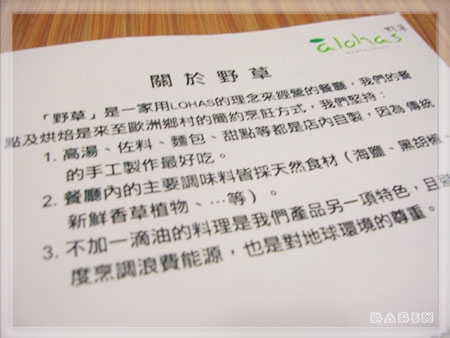 alohas 野草
關於野草
「野草」是一家用LOHAS的理念來經營的餐廳，我們的餐
點及烘焙是來至歐洲鄉村的簡約烹飪方式，我們堅持：
1. 高湯、佐料、麵包、甜點等都是店內自製，因為 傳統
的手工製作最好吃。
2. 餐廳內的主要調味料皆採天然食材（海鹽、黑胡椒、
新鮮香草植物、…等）。
3. 不加一滴油的料理是我們產品另一項特色，且避
度烹調浪費能源，也是對地球環境的尊重。